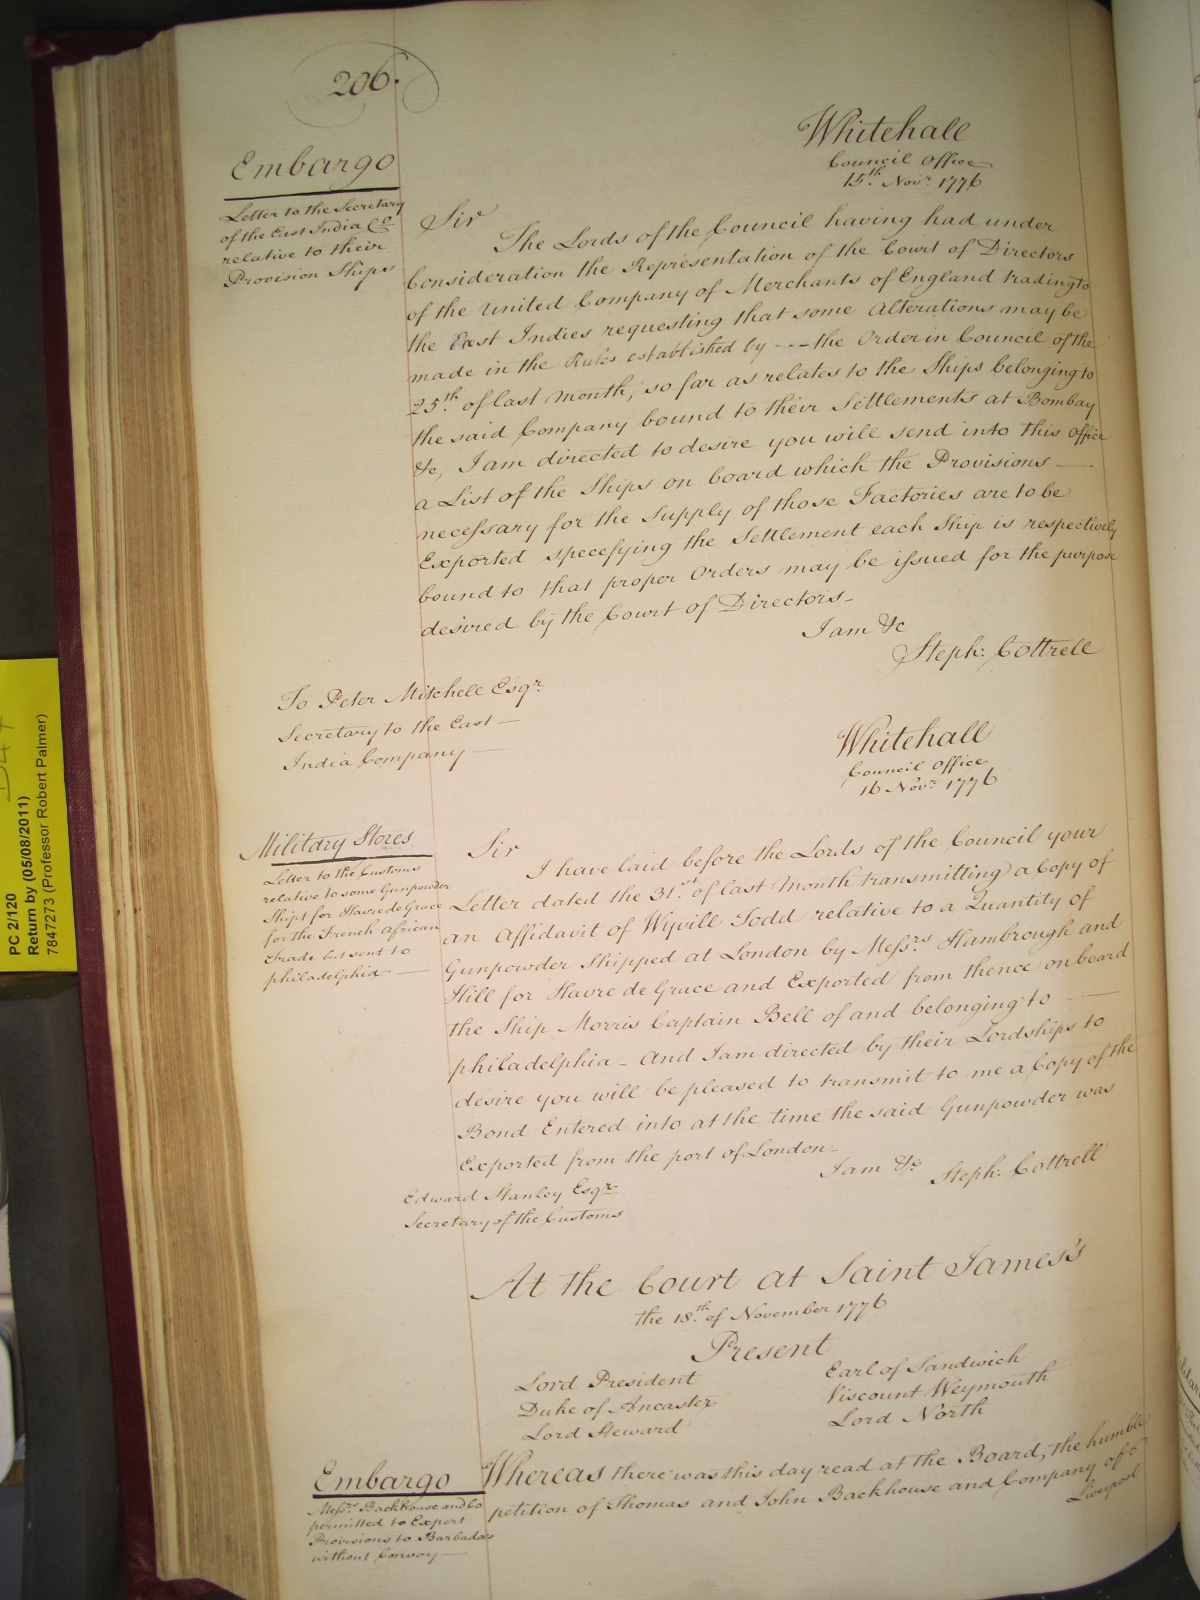 206.
Whitehall
Council Office
15th Novr 1776
Embargo
Letter to the Secretary
of the East India Co
relative to their
Provision Ships
Sir
The Lords of the Council having had under
Consideration the Representation of the Court of Directors
of the United Company of Merchants of England trading to
the East Indies requesting that some Alterations may be
made in the Rules established by --- the Order in Council of the
25th of last Month, so far as relates to the Ships belonging to
the said Company bound to their Settlements at Bombay
&c, I am directed to desire you will send into this Office
a List of the Ships on board which the Provisions —
necessary for the Supply of those Factories are to be
Exported specefying the Settlement each Ship is respectively
bound to that proper Orders may be issued for the purpose
desired by the Court of Directors_
I am &c
Steph: Cottrell
To Peter Mitchell Esqr.
Secretary to the East —
India Company —
Whitehall
Council Office
16 Novr 1776
Military Stores
Letter to the Customs
relative to some Gunpowder
Shipt for Havre de Grace
for the French African
Trade but sent to
philadelphia —
Sir
I have laid before the Lords of the Council your
Letter dated the 31st of last Month transmitting a Copy of
an Affidavit of Wyvill Todd relative to a Quantity of
Gunpowder Shipped at London by Messrs Hambrough and
Hill for Havre de Grace and Exported from thence on board
the Ship Morris Captain Bell of and belonging to —
philadelphia _ And I am directed by their Lordships to
desire you will be pleased to transmit to me a Copy of the
Bond Entered into at the time the said Gunpowder was
Exported from the port of London_
I am &c
Steph: Cottrell
Edward Stanley Esqr.
Secretary of the Customs
At the Court at Saint James's
the 18th of November 1776
Present
Lord President
Duke of Ancaster
Lord Steward
Earl of Sandwich
Viscount Weymouth
Lord North
Embargo
Messrs Backhouse and Co
permitted to Export
Provisions to Barbadoes
without Convoy —
Whereas there was this day read at the Board, the humble
petition of Thomas and John Backhouse and Company of
Liverpool
PC 2/120
Return by (05/08/2011)
7847273 (Professor Robert Palmer)